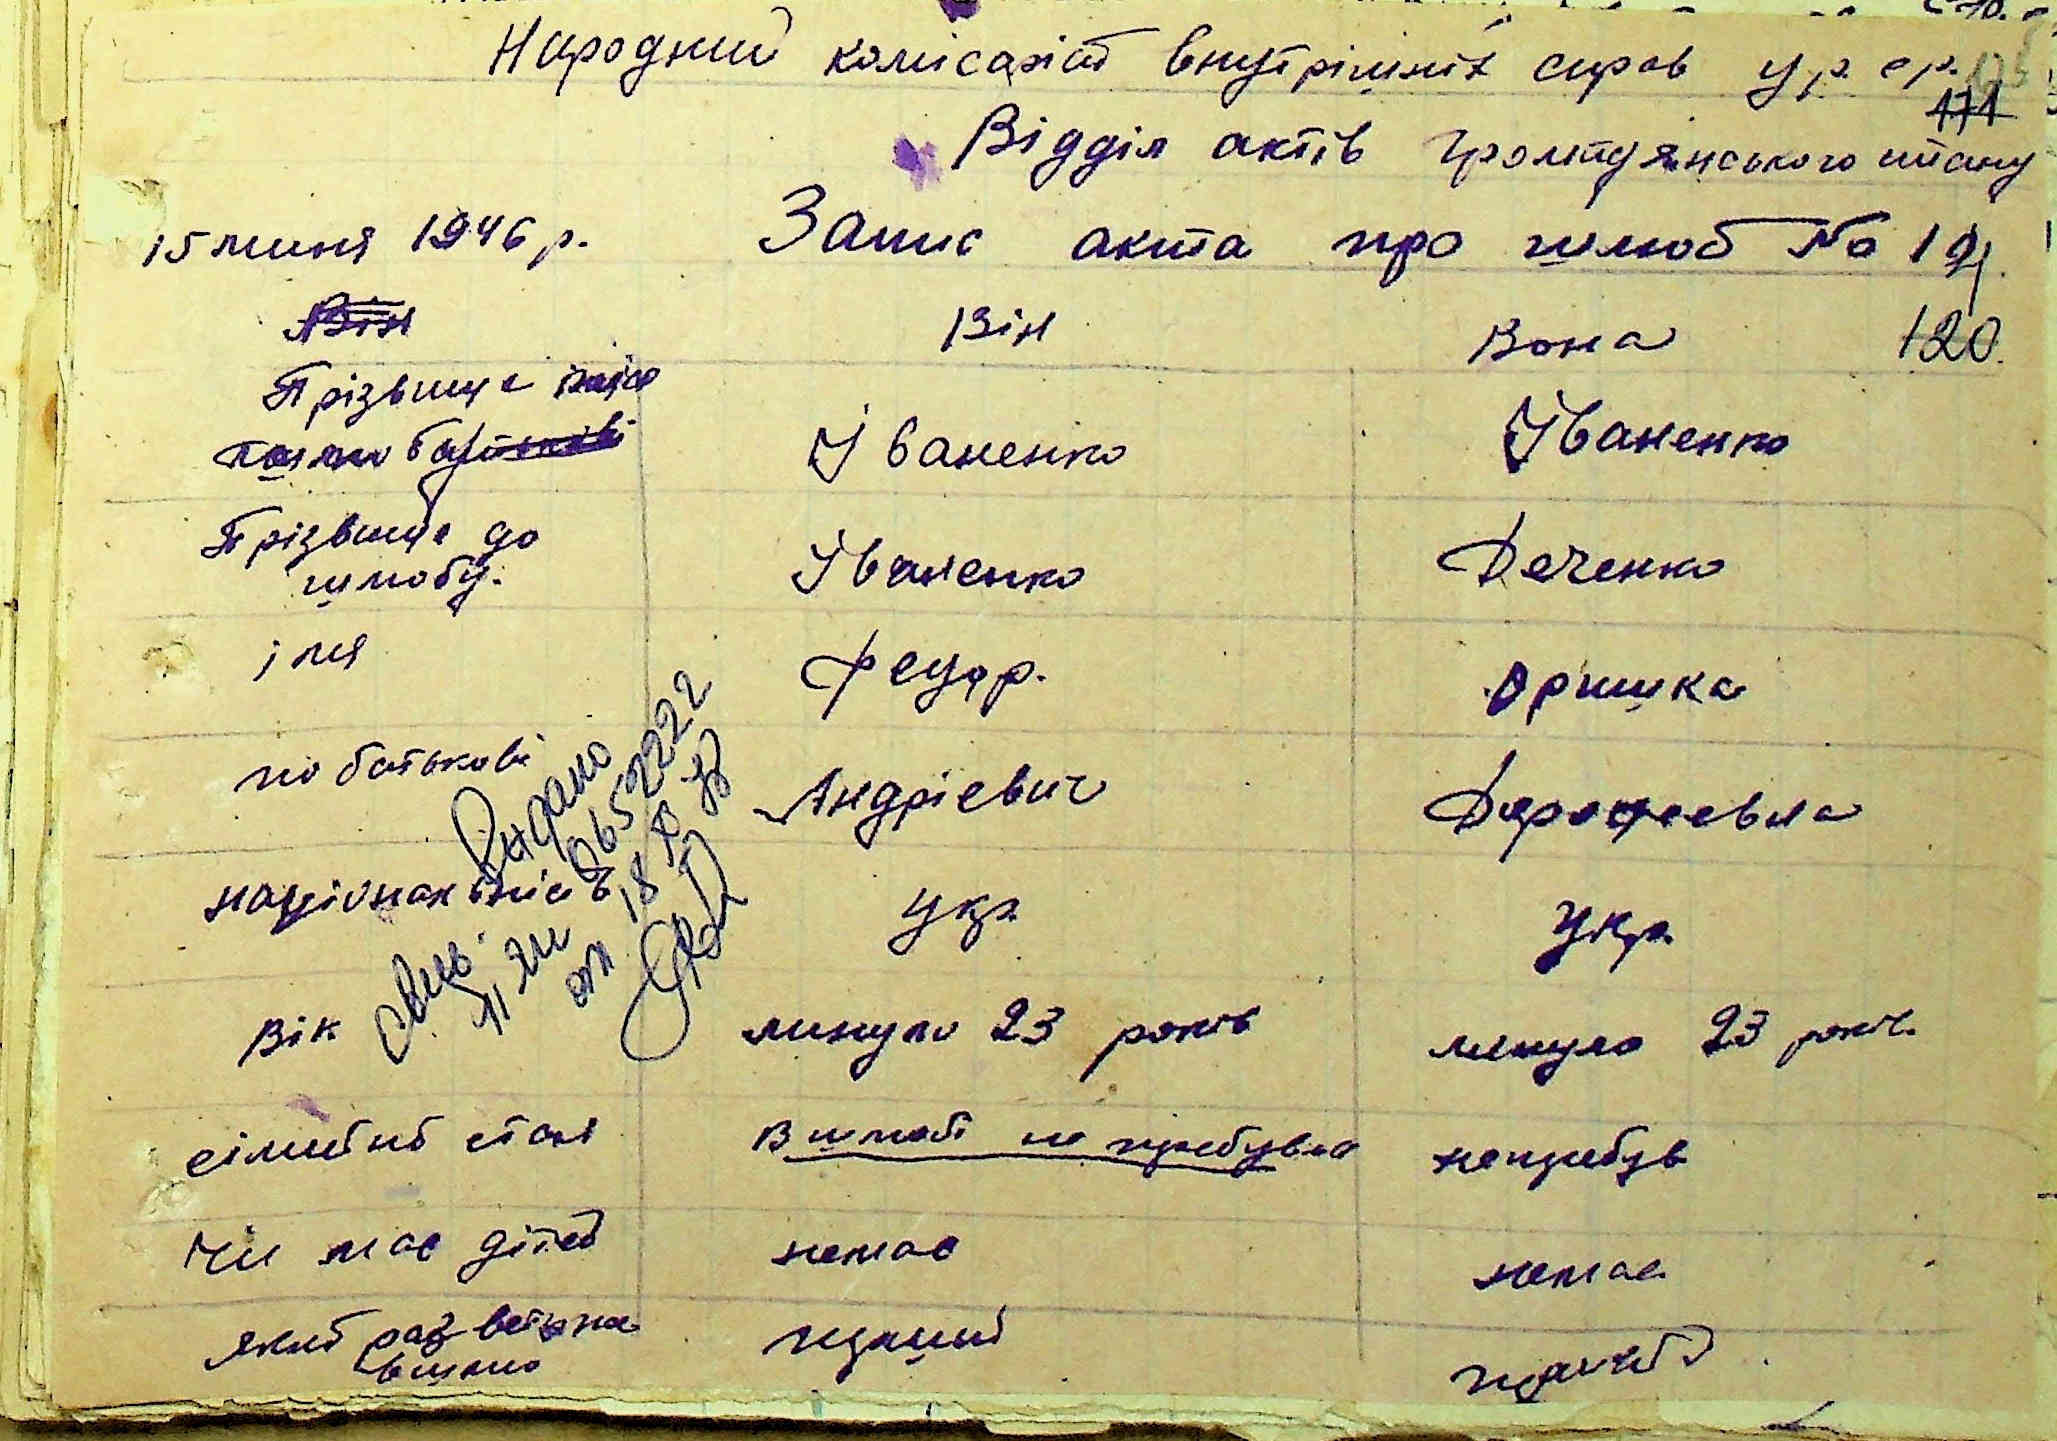 Народний комісаріат внутрішніх справ У.р. ср.
171
Відділ актів громадянського стану
15 липня 1946 р. Запис акта про шлюб № 19
Він Він Вона 120.
Прізвище після
шлюбу Іваненко Іваненко
Прізвище до
шлюбу. Іваненко Деченко
імя Федор. Оришка
по батькові Андріевич Дорофеевна
національність укр. Укр.
Видано
свид.
065222
от 18
Вік минуло 23 років минуло 23 років.
сімейний стан В шлюбі не пребував непребув
Чи має дітей немає немає
який раз вступа
в шлюб перший перший